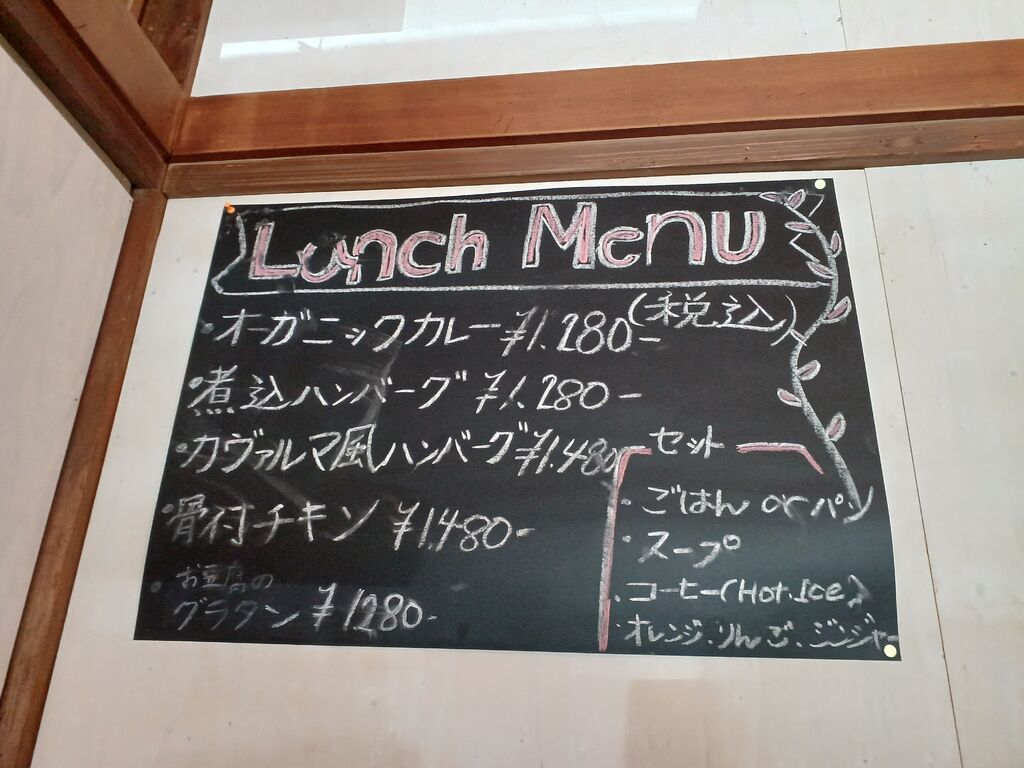 Lunch Menu
・オーガニックカレー ¥1.280- (税込)
・煮込ハンバーグ ¥1.280-
・カヴァルマ風ハンバーグ ¥1.480
・骨付チキン ¥1.480-
・お豆腐の
グラタン ¥1280-
セット
・ごはん or パン
・スープ
・コーヒー(Hot.Ice)
・オレンジ.りんご.ジンジャー